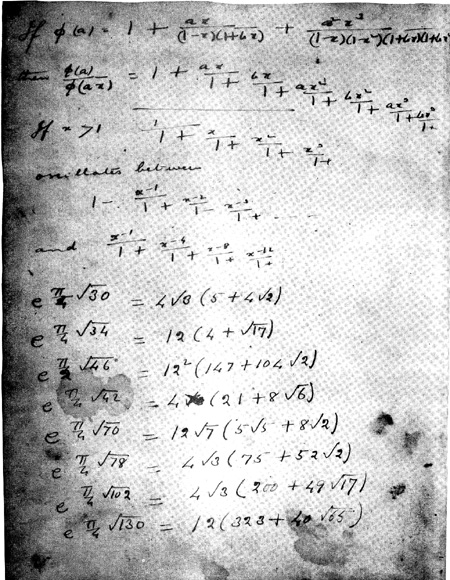 If φ(a) = 1 + ax/((1-x)(1+bx)) + a²x³/((1-x)(1-x²)(1+bx)(1+bx
then φ(a)/φ(ax) = 1 + ax/1+ bx/1+ ax²/1+ bx²/1+ ax³/1+ bx³/1+
If x > 1 1/1+ x/1+ x²/1+ x³/1+
oscillates between
1 - x⁻¹/1+ x⁻²/1- x⁻³/1+ ...
and x⁻¹/1+ x⁻⁴/1+ x⁻⁸/1+ x⁻¹²/1+
e^(π/4 √30) = 4√3 (5 + 4√2)
e^(π/4 √34) = 12 (4 + √17)
e^(π/2 √46) = 12² (147 + 104√2)
e^(π/4 √42) = 4 (21 + 8√6)
e^(π/4 √70) = 12√7 (5√5 + 8√2)
e^(π/4 √78) = 4√3 (75 + 52√2)
e^(π/4 √102) = 4√3 (200 + 49√17)
e^(π/4 √130) = 12 (323 + 40√65)